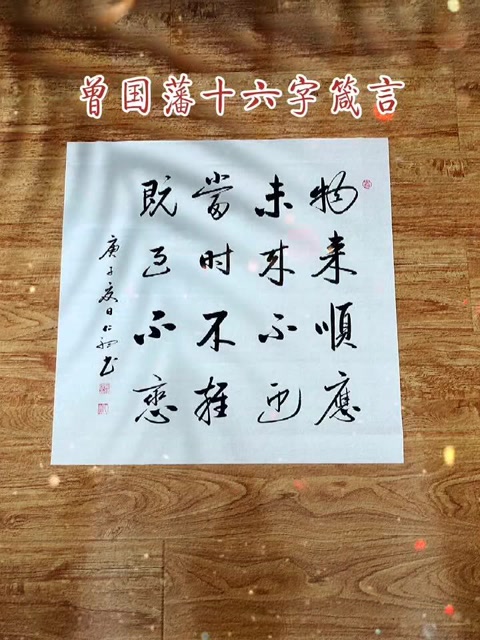 曾国藩十六字箴言
物来順應
未来不迎
當时不雜
既过不戀
庚子夏日仁书